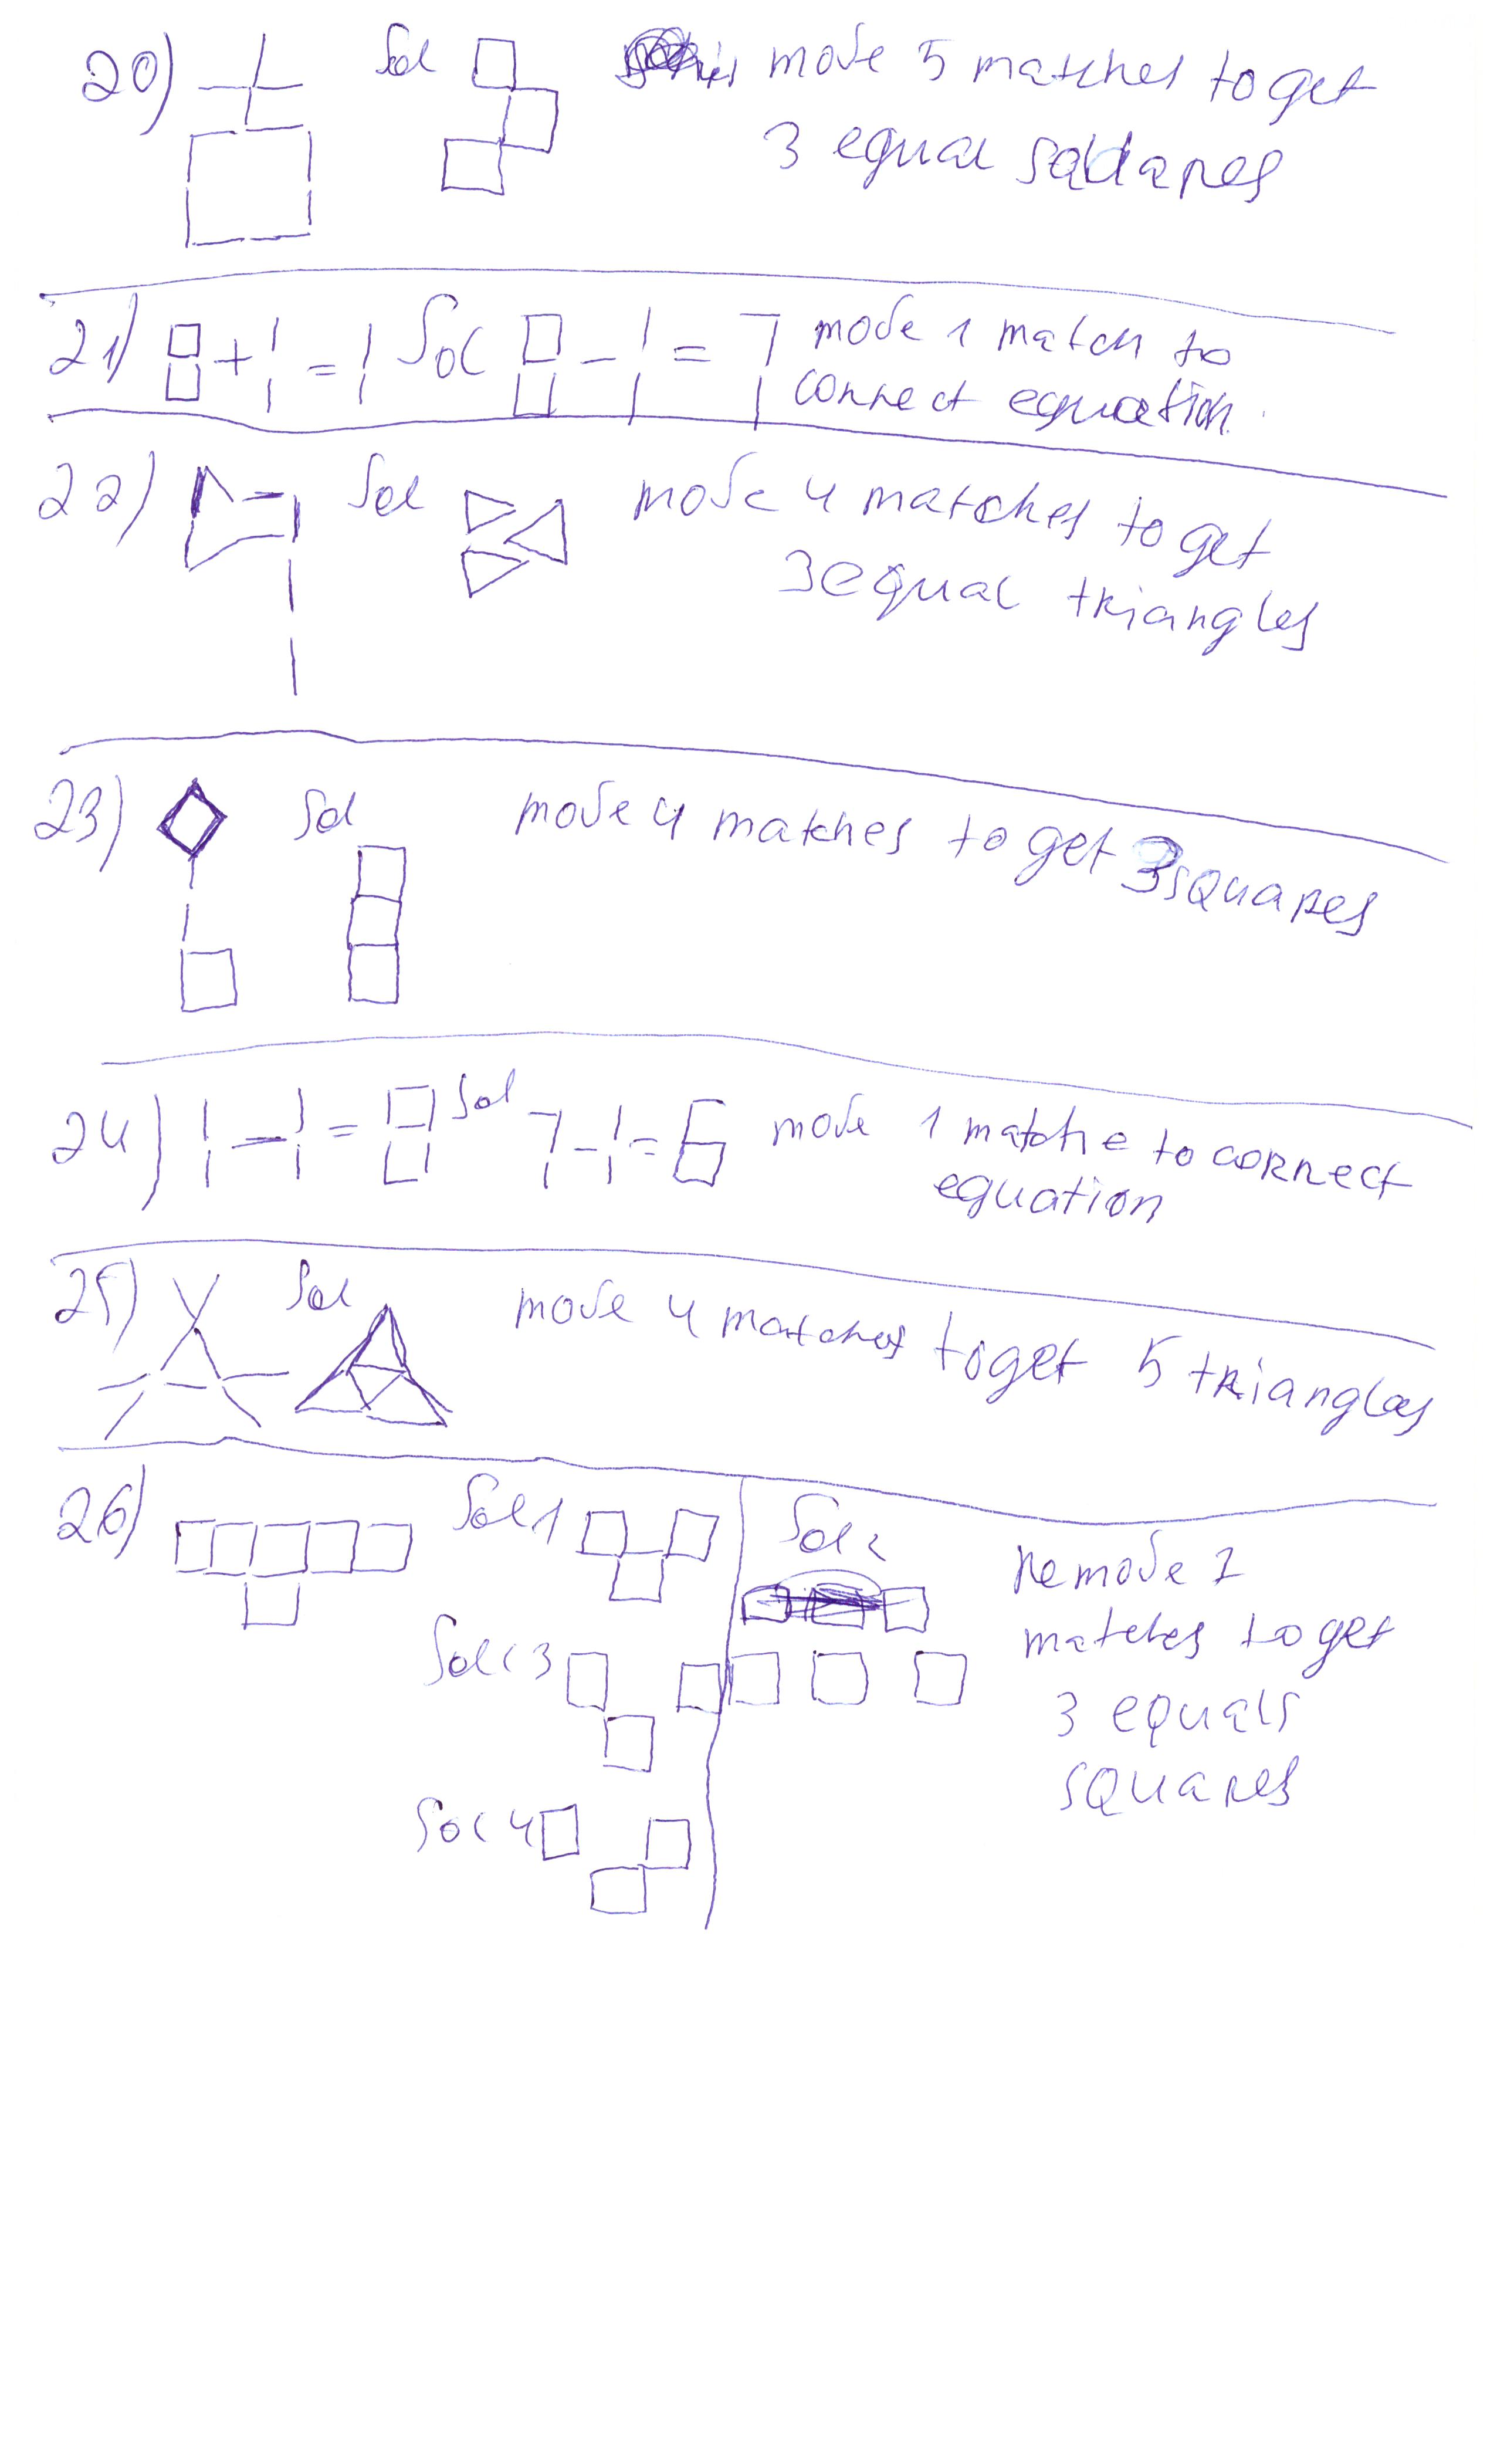 20) Sol move 5 matches to get
3 equal squares
21) 8+1=1 Sol 8-1=7 move 1 match to
correct equation.
22) Sol move 4 matches to get
3 equal triangles
23) Sol move 4 matches to get 3 squares
24) 1-1=0 Sol 7-1=6 move 1 matche to correct
equation
25) Sol move 4 matches to get 5 triangles
26) Sol 1 Sol 2 Remove 7
matches to get
Sol 3
3 equals
squares
Sol 4